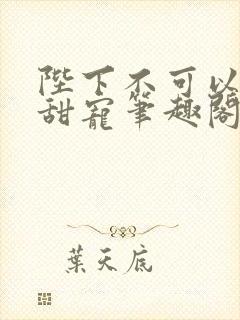 陛下不可以
甜寵筆趣閣
葉天底